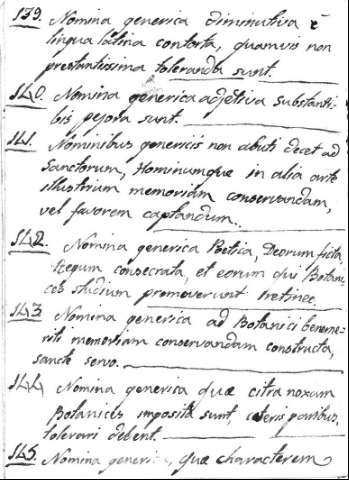 139. Nomina generica diminutiva è
lingua latina contorta, quamvis non
prestantissima toleranda sunt.
140. Nomina generica adjetiva substanti-
bis pejora sunt.
141. Nominibus genericis non abuti decet ad
Sanctorum, Hominumque in alia arte
illustrium memoriam conservandam,
vel favorem captandum.
142. Nomina generica Poetica, Deorum ficta,
Regum consecrata, et eorum qui Botani-
ces studium promoverunt retineo.
143 Nomina generica ad Botanici beneme-
riti memoriam conservandam constructa,
sancte servo.
144 Nomina generica quæ citra noxam
Botanices imposita sunt, ceteris paribus,
tolerari debent.
145 Nomina generica, quæ characterem